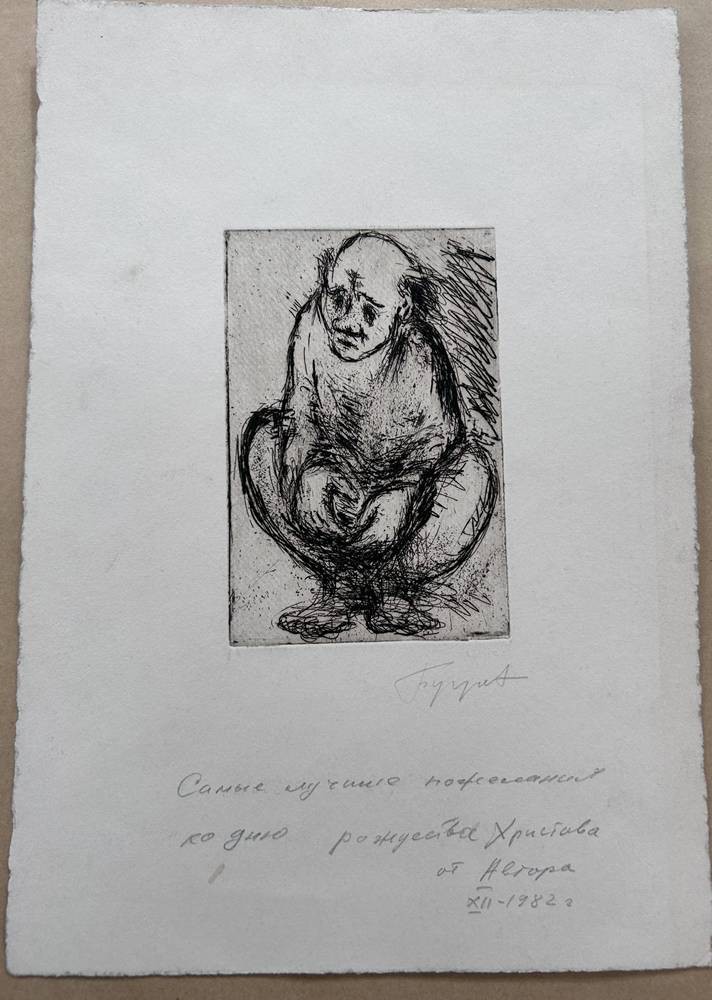 Самые лучшие пожелания
ко дню рожуества Христова
от Автора
XII-1982 г